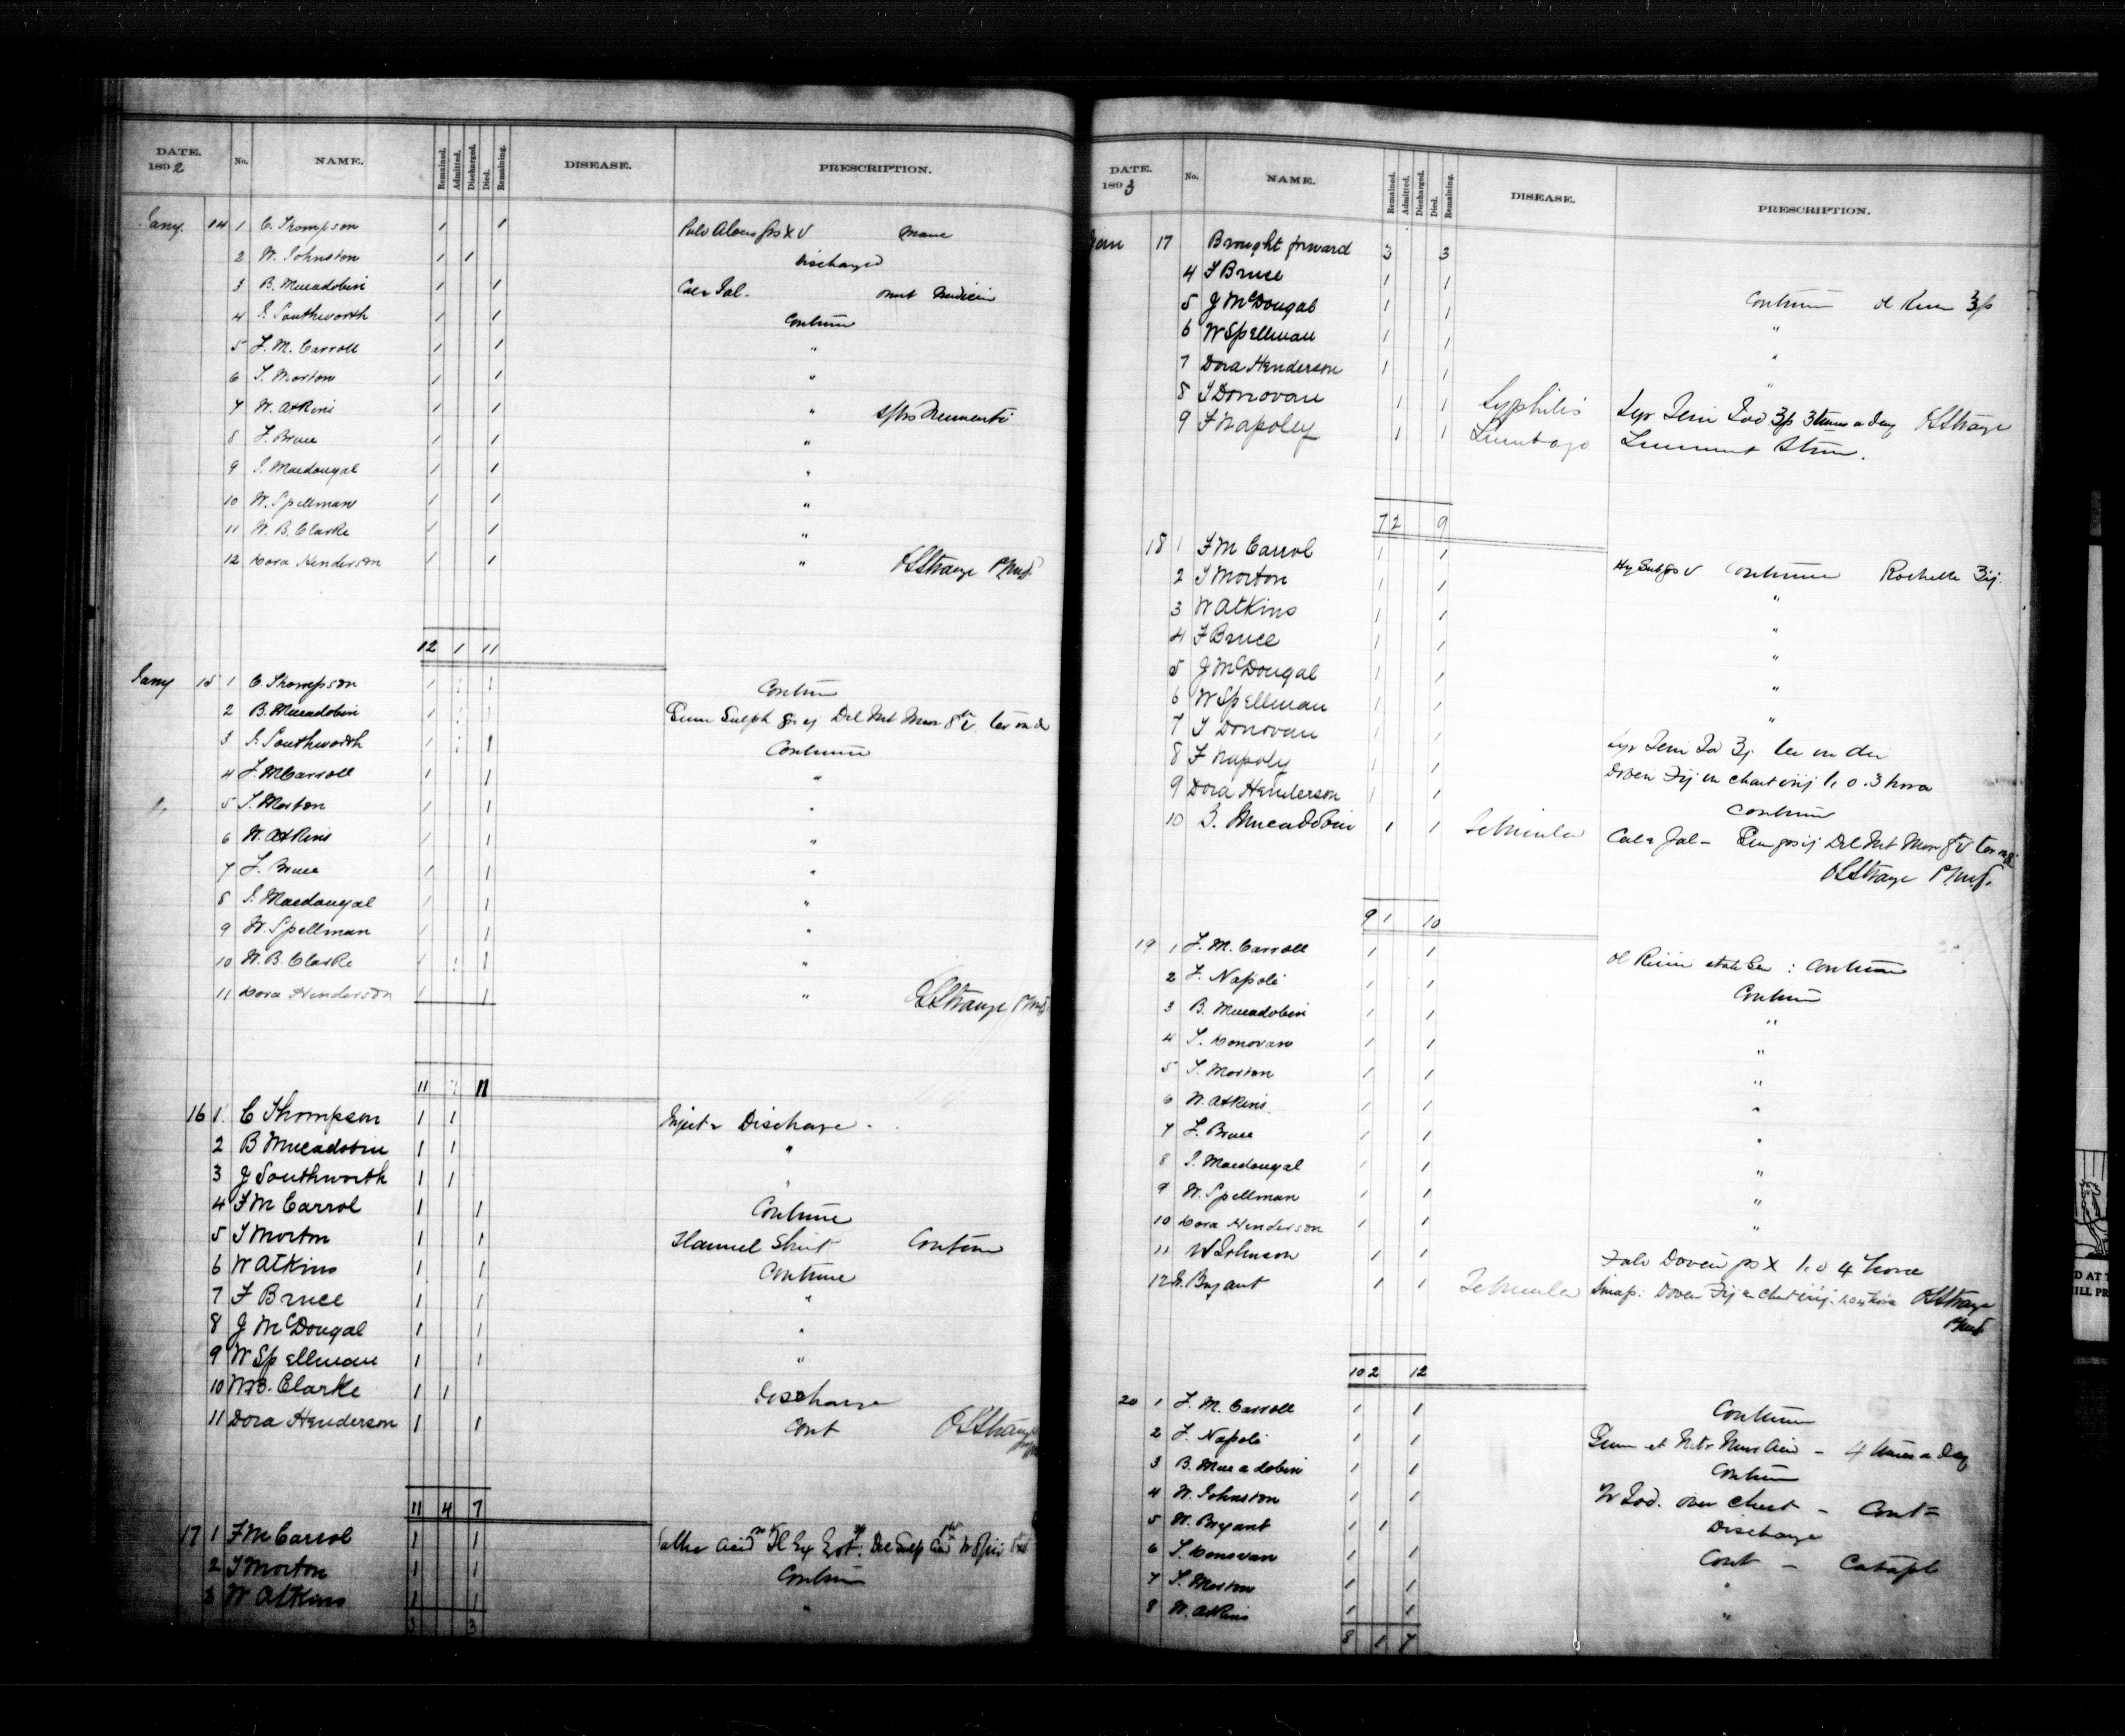 DATE. 1892 No. NAME. Remained. Admitted. Discharged. Died. Remaining. DISEASE. PRESCRIPTION.
Jany. 14 1 C. Thompson 1 1 Pulv grs XV mane
2 W. Johnston 1 1 Discharged
3 B. Mucadobin 1 1 Omit Medicin
4 J. Southworth 1 1 Continue
5 F. M. Carroll 1 1 "
6 T. Morton 1 1 "
7 W. Atkins 1 1 "
8 F. Bruce 1 1 "
9 J. Macdougal 1 1 "
10 W. Spellman 1 1 "
11 W. B. Clarke 1 1 "
12 Dora Henderson 1 1 " OS Strange
12 1 11
Jany 15 1 C. Thompson 1 1 Contin
2 B. Mucadobin 1 1 Sulph
3 J. Southworth 1 1 Continue
4 F. M Carroll 1 1 "
5 T. Morton 1 1 "
6 W. Atkins 1 1 "
7 F. Bruce 1 1 "
8 J. Macdougal 1 1 "
9 W. Spellman 1 1 "
10 W. B. Clarke 1 1 "
11 Dora Henderson 1 1 " OS Strange
11 11
16 1 C Thompson 1 1 Discharge
2 B Mucadobin 1 1 "
3 J Southworth 1 1 "
4 F M Carrol 1 1 Continue
5 T Morton 1 1 Flannel Shirt Contin
6 W Atkins 1 1 Continue
7 F Bruce 1 1 "
8 J McDougal 1 1 "
9 W Spellman 1 1 "
10 W B. Clarke 1 1 Discharge
11 Dora Henderson 1 1 Cont OS Strange
11 4 7
17 1 F M Carrol 1 1 Acid
2 T Morton 1 1 Contin
3 W Atkins 1 1 "
3 3
DATE. 1893 No. NAME. Remained. Admitted. Discharged. Died. Remaining. DISEASE. PRESCRIPTION.
Jan 17 Brought forward 3 3
4 F Bruce 1 1 Continue
5 J McDougal 1 1 "
6 W Spellman 1 1 "
7 Dora Henderson 1 1 "
8 T Donovan 1 1 Syphilis Syr Ferri Iod 3 times a day OS Strange
9 F Napoley 1 1 Lumbago Liniment
7 2 9
18 1 F M Carrol 1 1 Continue Rochelle
2 T Morton 1 1 "
3 W Atkins 1 1 "
4 F Bruce 1 1 "
5 J McDougal 1 1 "
6 W Spellman 1 1 "
7 T Donovan 1 1 Syr Ferri Iod
8 F Napoly 1 1 Doveri
9 Dora Henderson 1 1 Continue
10 B. Mucadobin 1 1 Febricula
OS Strange
9 1 10
19 1 F. M. Carroll 1 1 Continue
2 F. Napoli 1 1 Contin
3 B. Mucadobin 1 1 "
4 T. Donovan 1 1 "
5 T. Morton 1 1 "
6 W. Atkins 1 1 "
7 F. Bruce 1 1 "
8 J. Macdougal 1 1 "
9 W. Spellman 1 1 "
10 Dora Henderson 1 1 "
11 W Johnson 1 1 Pulv Doveri grs X 4 hora
12 Bryant 1 1 Febricula Sinap. Doveri OS Strange
10 2 12
20 1 F. M. Carroll 1 1 Continue
2 F. Napoli 1 1 4 times a day
3 B. Mucadobin 1 1 Contin
4 W. Johnston 1 1 Iod. over chest - Cont
5 W. Bryant 1 1 Discharge
6 T. Donovan 1 1 Cont - Catapl
7 T. Morton 1 1 "
8 W. Atkins 1 1 "
8 1 7